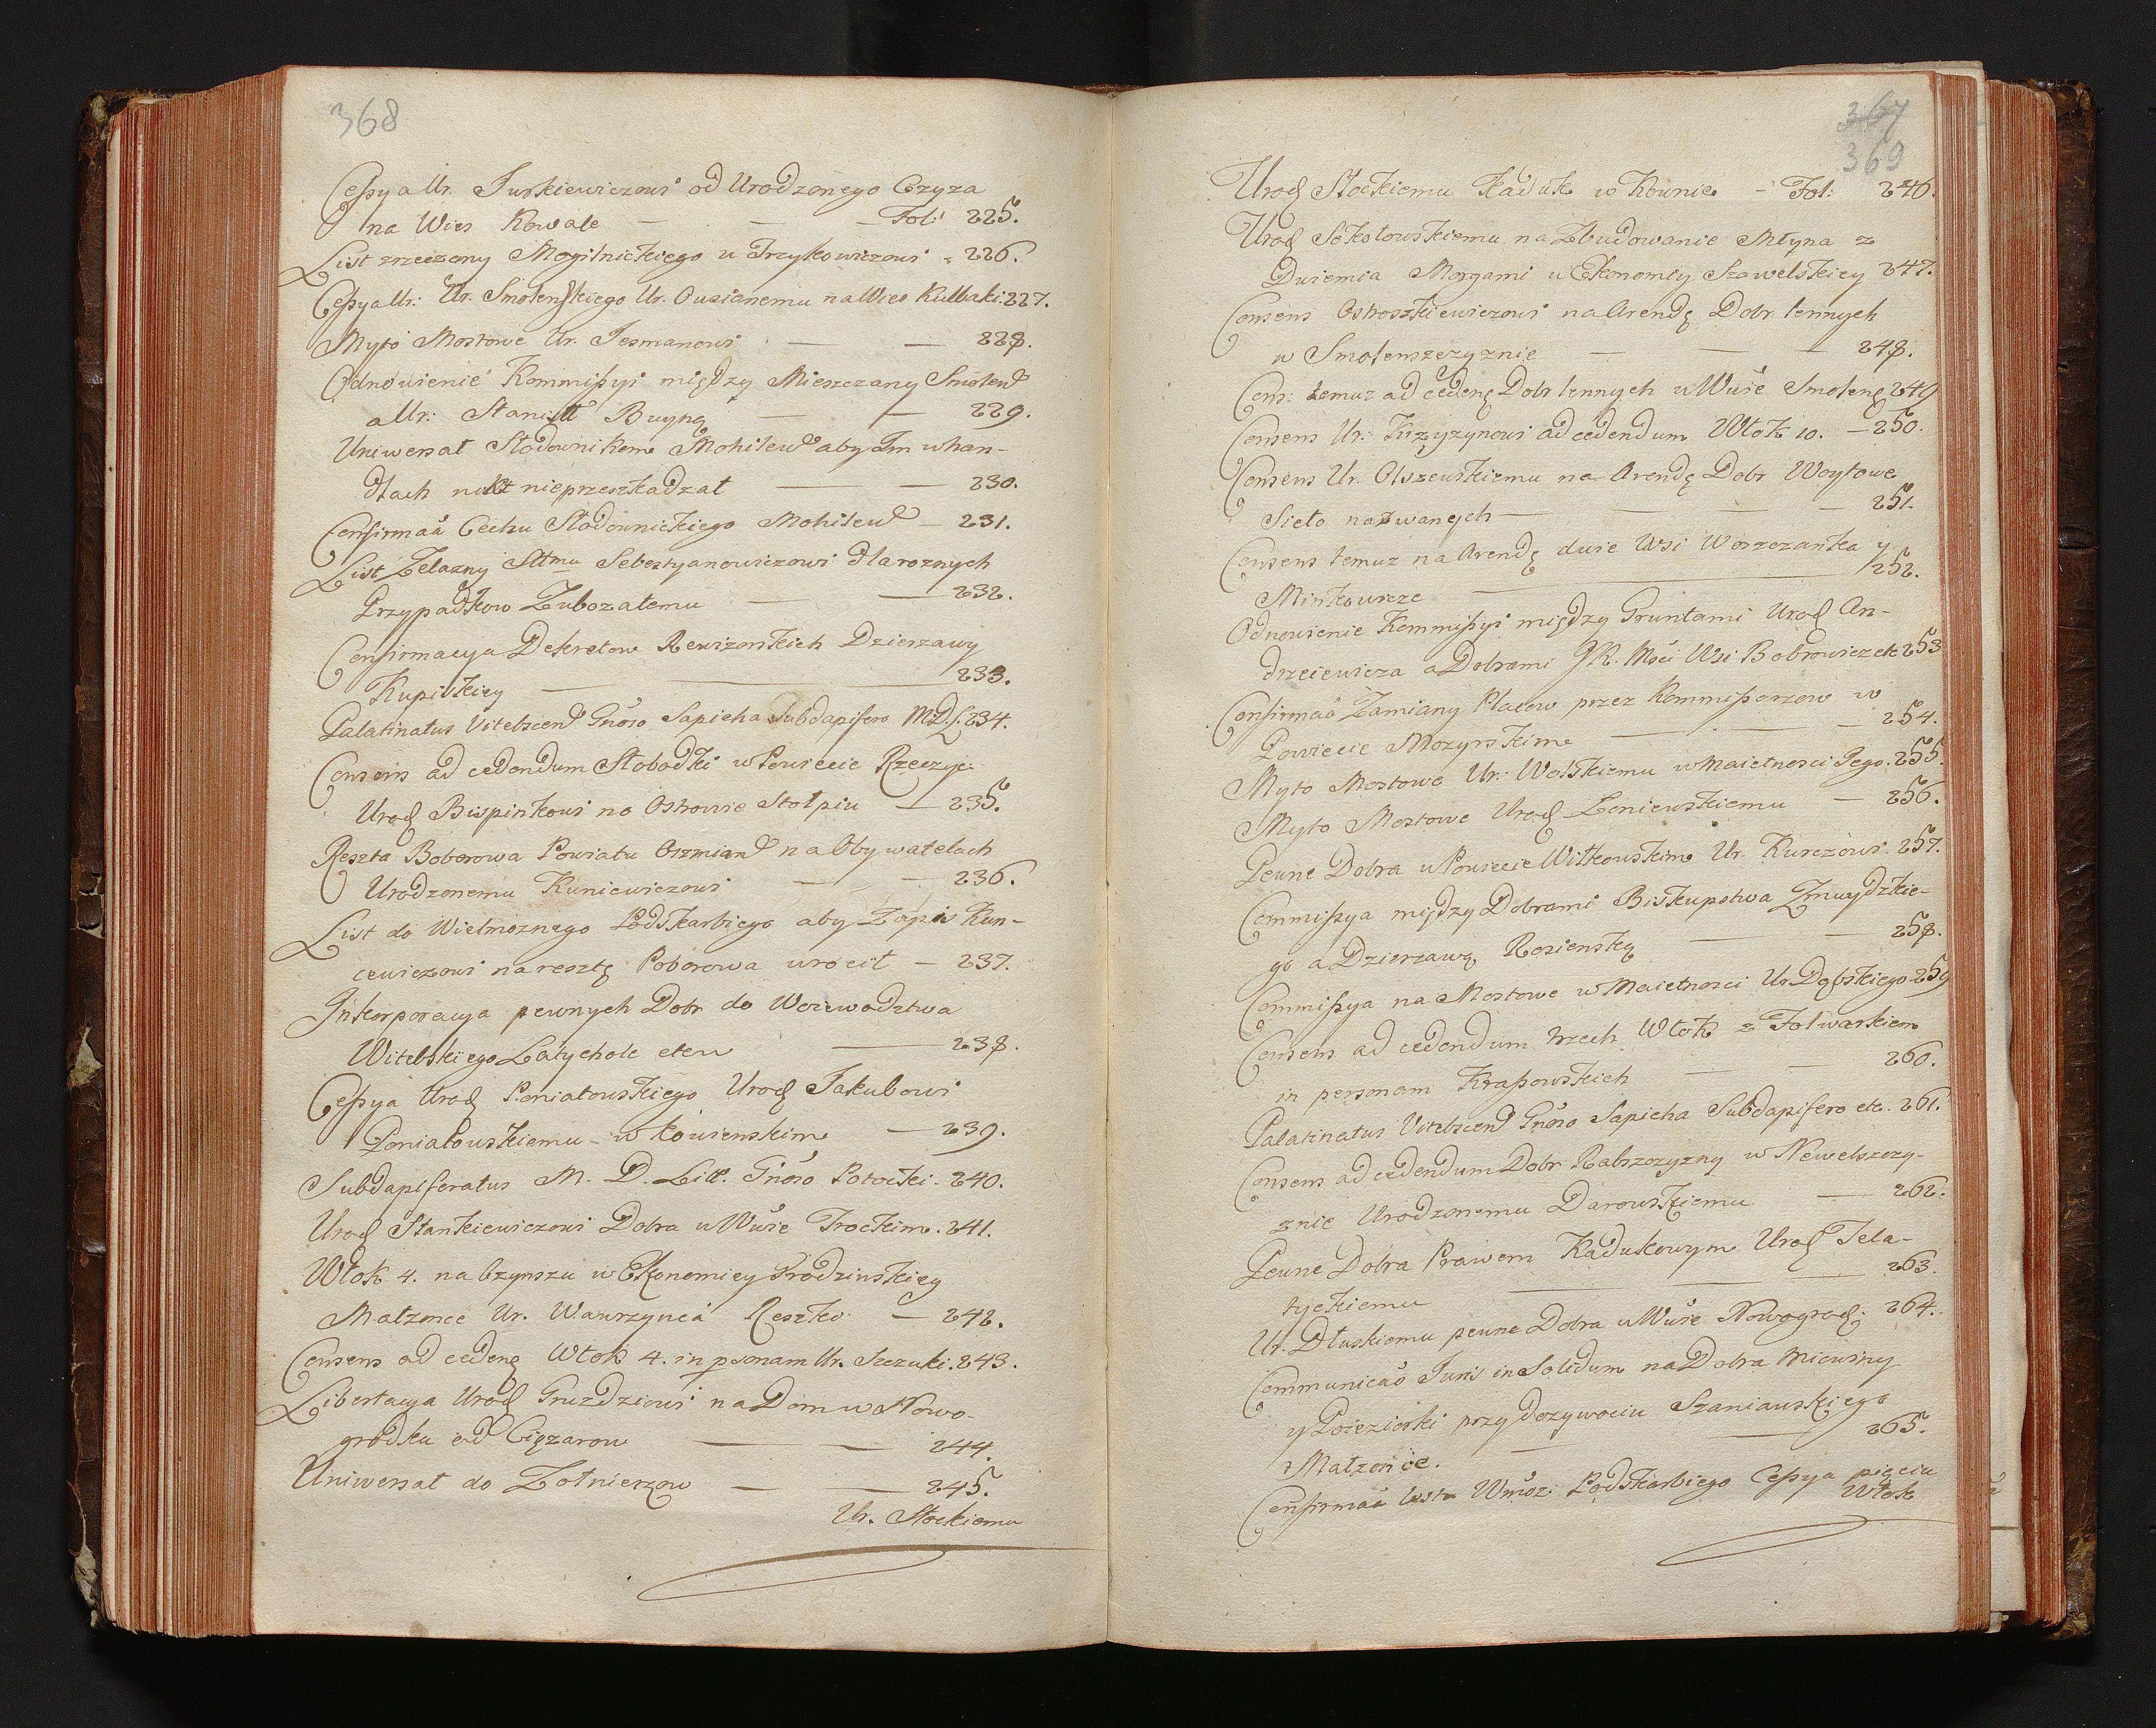 368
Cessya Ur. Jurkiewiczowi od Urodzonego Czyza
na Wies Kowale — — — Fol: 225.
List zrzeczony Mogilnickiego u Trzykowiczowi - 226.
Cessya Ur: Ur. Smolenskiego Ur. Ousianemu na Wies Kulbaki. 227.
Myto Mostowe Ur. Jesmanowi — — 228.
Odnowienie Kommissyi między Mieszczany Smolen
a Ur: Stanisł Buyną — — 229.
Uniwersał Słodownikom Mohilew aby Im w han-
dlach nikt nieprzeszkadzał — — 230.
Confirmaã Cechu Słodownickiego Mohilew — 231.
List Zelazny Sttmu Sebestyanowiczowi dla roznych
Przypadkow Zubozałemu — — 232.
Confirmacya Dekretow Rewizorskich Dzierzawy
Kupiskiey — — 233.
Palatinatus Vitebscen Gnoso Sapieha Subdapifero M.D.L. 234.
Consens ad cedendum Słobodki w Powiecie Rzeczyc:
Urod Bispinkowi na Ostrowie Stołpiu — 235.
Reszta Poborowa Powiatu Oszmian na Obywatelach
Urodzonemu Kuniewiczowi — — 236.
List do Wielmoznego Podskarbiego aby Zapis Kun-
cewiczowi na resztę Poborowa wrocił — 237.
Inkorporacya pewnych Dobr do Woiewodztwa
Witebskiego Łatychole etew — 238.
Cessya Urod Poniatowskiego Urod Jakubowi
Poniatowskiemu - w Kowienskim — 239.
Subdapiferatus M. D. Litt. Gnoso Potocki - 240.
Urod Stankiewiczowi Dobra w Wwie Trockim. 241.
Włok 4. na Czynszu w Ekonomiey Grodzinskiey
Małzonce Ur. Wawrzynca Reszko — 242.
Consens ad ceden Włok 4. in psonam Ur. Szczuki. 243.
Libertacya Urod Gruzdziowi na Dom w Nowo-
grodku od Cięzarow — — 244.
Uniwersał do Zołnierzow — — 245.
Ur. Stockiemu
367
369
Urod Stockiemu Kaduk w Kownie - Fol: 246.
Urod Sokołowskiemu na Zbudowanie Młyna z
Dwiemia Morgami w Ekonomiy Szawelskiey 247.
Consens Ostroszkiewiczowi na Arendę Dobr lennych
w Smolenszczyznie — — — 248.
Cons: temuz ad ceden Dobr lennych w Wwie Smolen 249
Consens Ur: Krzyzynowi ad cedendum Włok 10. — 250.
Consens Ur. Olszewskiemu na Arendę Dobr Woytowe
Sioło nazwanych — — — 251.
Consens temuz na Arendę dwie Wsi Woszczanka y
Minkowicze — 252.
Odnowienie Kommissyi między Gruntami Urod An-
drzeiewicza a Dobrami JK. Mści Wsi Bobrowiczek 253
Confirmaã Zamiany Placow przez Kommissarzow w
Powiecie Mozyrskim — — — 254.
Myto Mostowe Ur: Wolskiemu w Maietnosci Jego. 255.
Myto Mostowe Urod Zeniewskiemu — 256.
Pewne Dobra w Powiecie Wiłkowskim Ur. Kurczowi. 257.
Commissya między Dobrami Biskupstwa Zmuydzkie-
go a Dzierzawą Rosienską — — 258.
Commissya na Mostowe w Maietnosci Ur Dębskiego. 259
Consens ad cedendum trzech Włok z Folwarkiem
in personam Krassowskich — — 260.
Palatinatus Vitebscen Gnoso Sapieha Subdapifero etc. 261.
Consens ad cedendum Dobr Rabszczyzny w Newelszczy-
znie Urodzonemu Darowskiemu — 262.
Pewne Dobra Prawem Kadukowym Urod Tela-
tyckiemu — — 263.
Ur. Dłuskiemu pewne Dobra w Wwie Nowogrod: 264.
Communicão Juris in Solidum na Dobra Micwiny
y Poiezierki przy dozywociu Szaniawskiego
Małzonce. — — 265.
Confirmaã Listu Wmoz: Podskarbiego Cessya pięciu
Włok